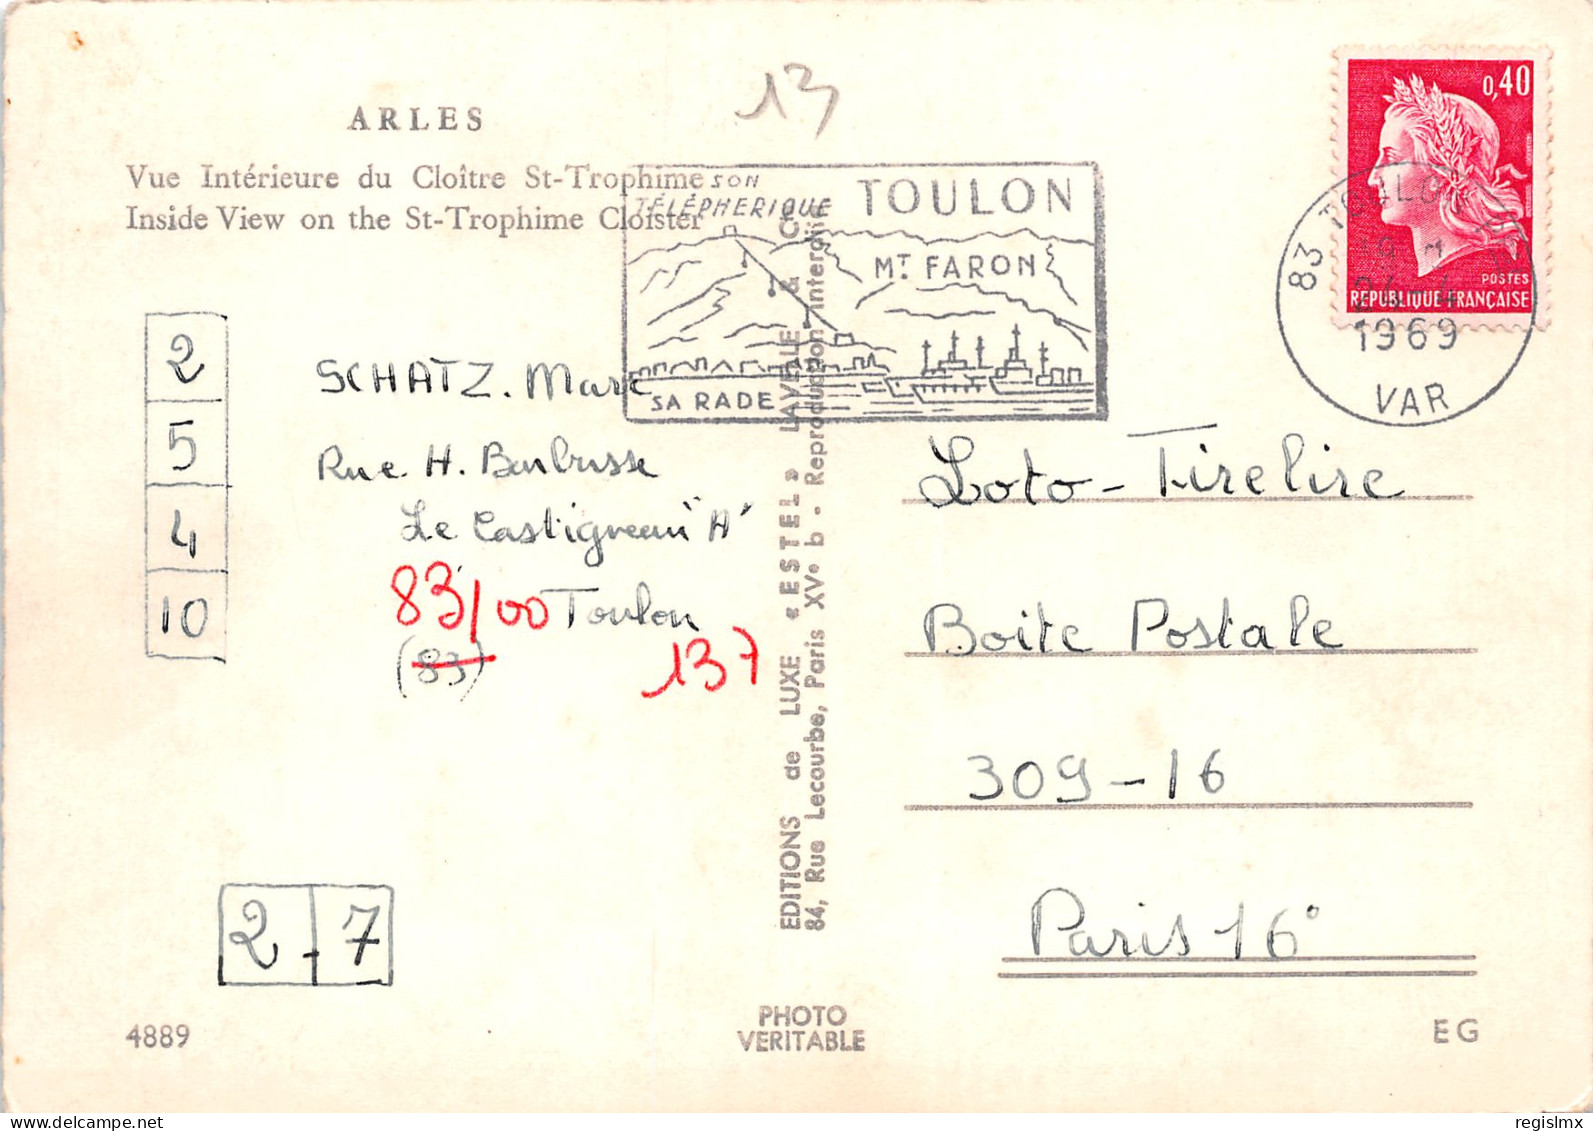 13
ARLES
Vue Intérieure du Cloître St-Trophime
Inside View on the St-Trophime Cloister
SON
TÉLÉPHERIQUE
TOULON
MT FARON
SA RADE
0,40
POSTES
REPUBLIQUE FRANÇAISE
83 TOULON
1969
VAR
2
5
4
10
SCHATZ. Marc
Rue H. Barbusse
Le Castigneau "A"
83/00 Toulon
(83)
137
2-7
EDITIONS de LUXE « ESTEL » LAVELLE & Cie
84, Rue Lecourbe, Paris XVe b - Reproduction interdite
Loto-Tirelire
Boite Postale
309-16
Paris 16°
4889
PHOTO
VERITABLE
EG
regislmx